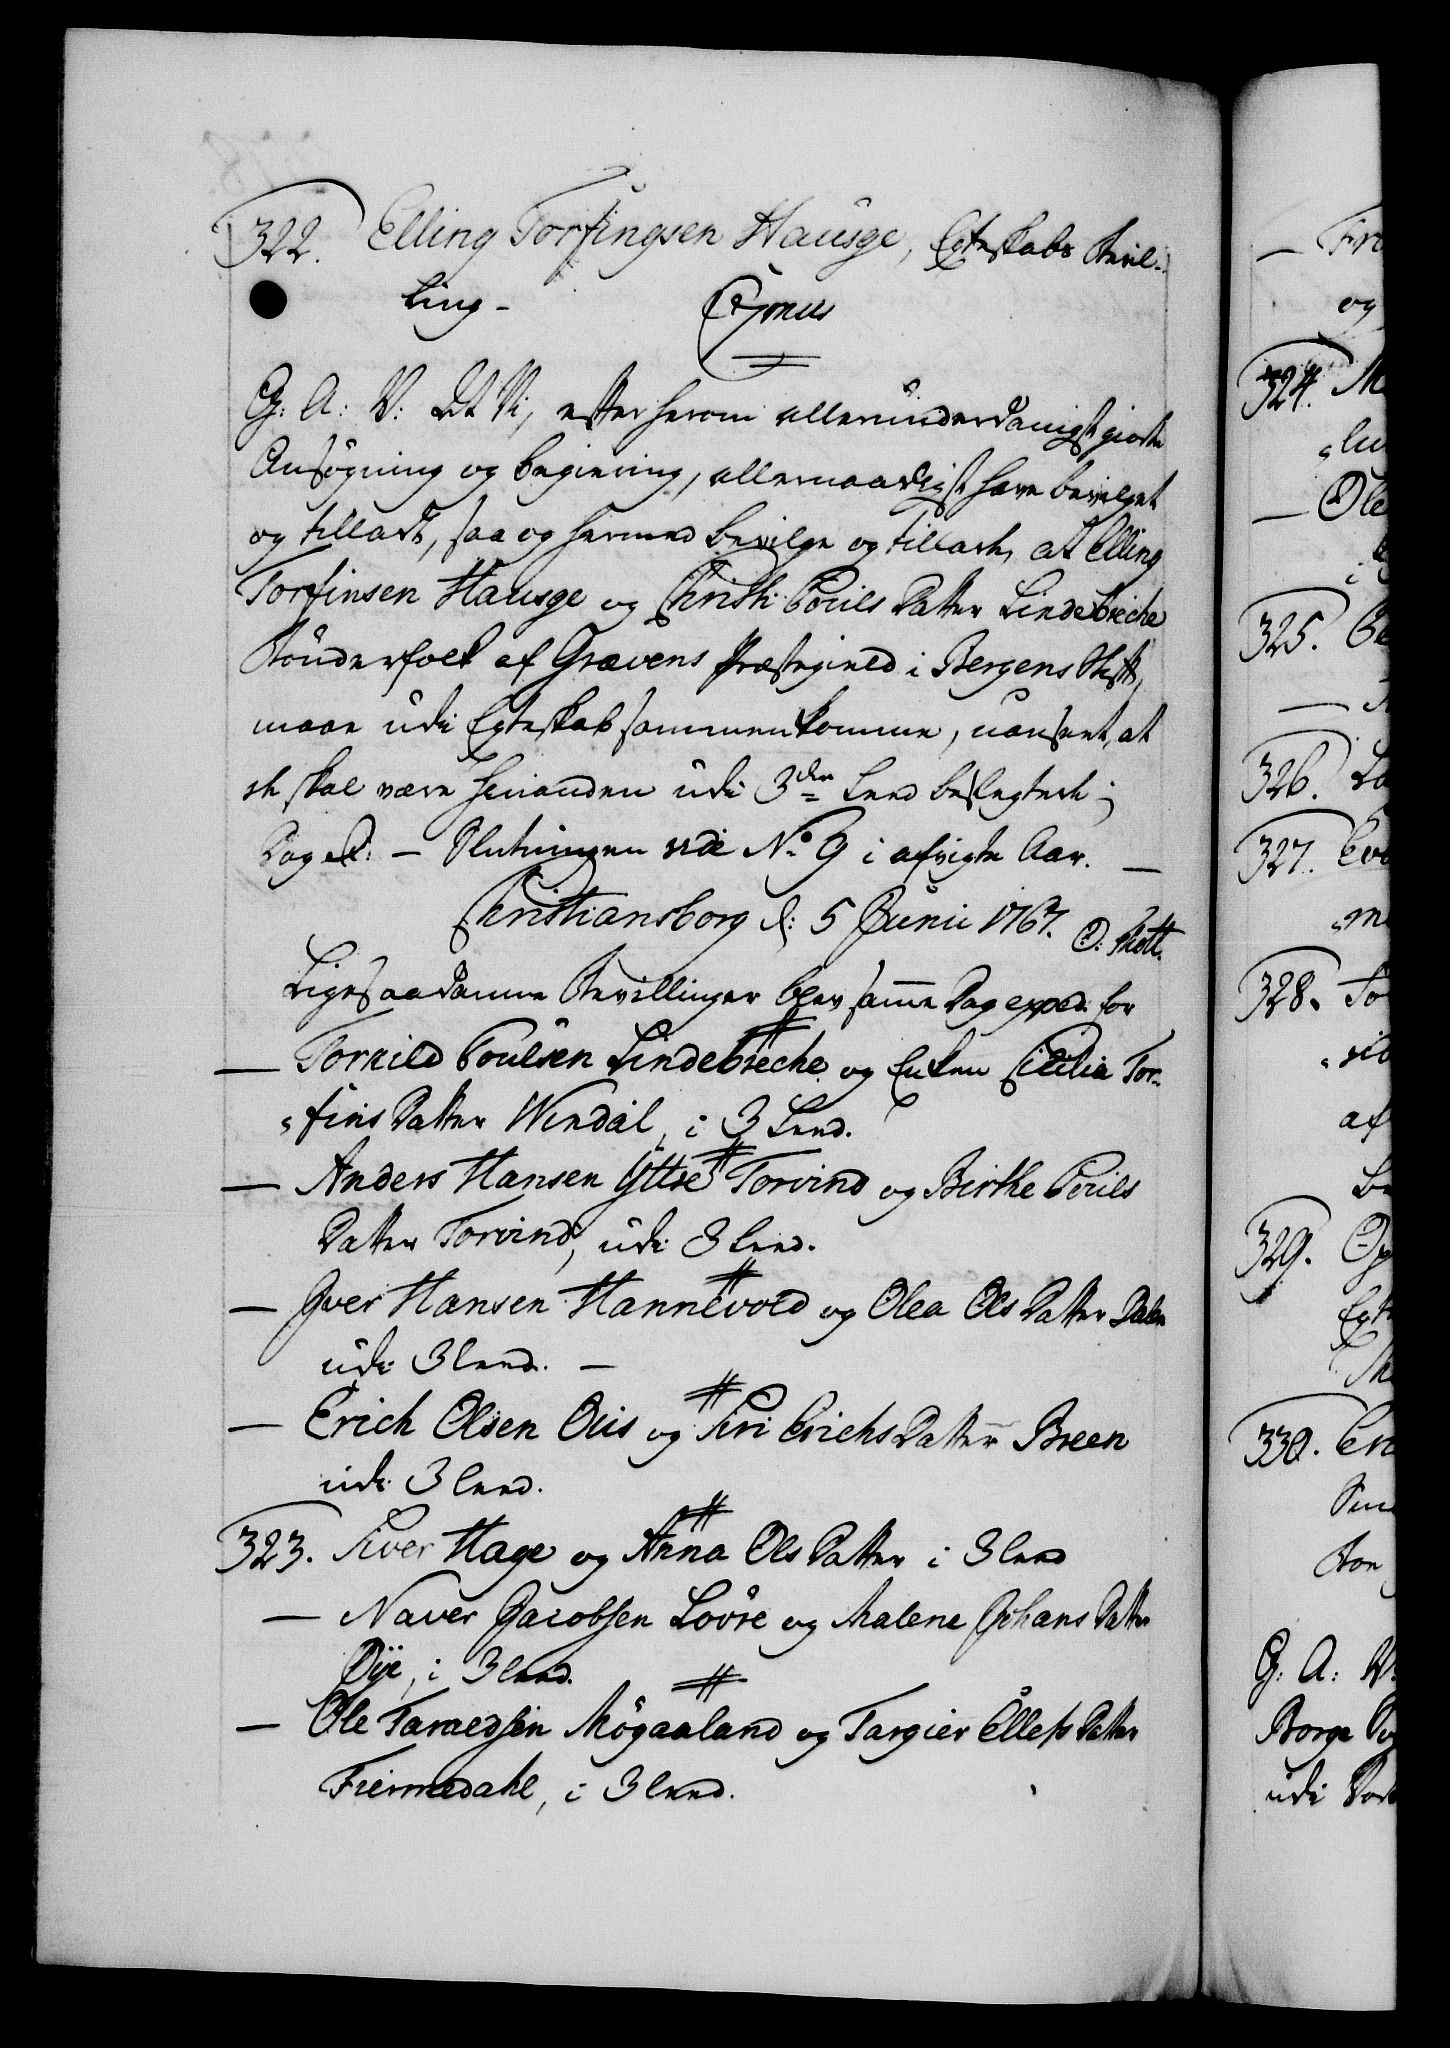 322. Elling Torfingsen Hausge, Egteskabs Bevil-
ling-
G: A: V: At Vi, efter herom allerunderdanigst giorte
Ansøgning og begiering, allernaadigst have bevilget
og tilladt, saa og hermed bevilge og tillade, at Elling
Torfinsen Hausge og Christi Pouls Datter Lindebreche
Bønderfolk af Gravens Præstegield i Bergens Stift,
maae udi Egteskab sammenkomme, uanseet, at
de skal være hinanden udi 3die Leed beslegtede;
Dog &c: — Slutningen vide No 9 i afvigte Aar. —
Christiansborg d: 5 Junii 1767. O: Thott.
Ligesaadanne Bevillinger blev samme Dag exped: for
— Torkild Poulsen Lindebreche og Enken Cicilia Tor-
fins Datter Windal, i 3 Leed.
— Anders Hansen Yttre Torvind og Birthe Pouls
Datter Torvind, udi 3 Leed.
— Iver Hansen Hannevold og Olea Ols Datter Dalen
udi 3 Leed. —
— Erich Olsen Ous og Siri Erichs Datter Breen
udi 3 Leed.
323. Siver Hage og Anna Ols Datter i 3 Leed
— Naver Jacobsen Lovre og Malene Johans Datter
Øye, i 3 Leed.
— Ole Taraldsen Møgaaland og Targier Ellefs Datter
Fiermedahl, i 3 Leed.
— Fra
og
324. M
Ole
325.
326.
327.
328.
af
329.
330.
G: A: V:
Borge
udi